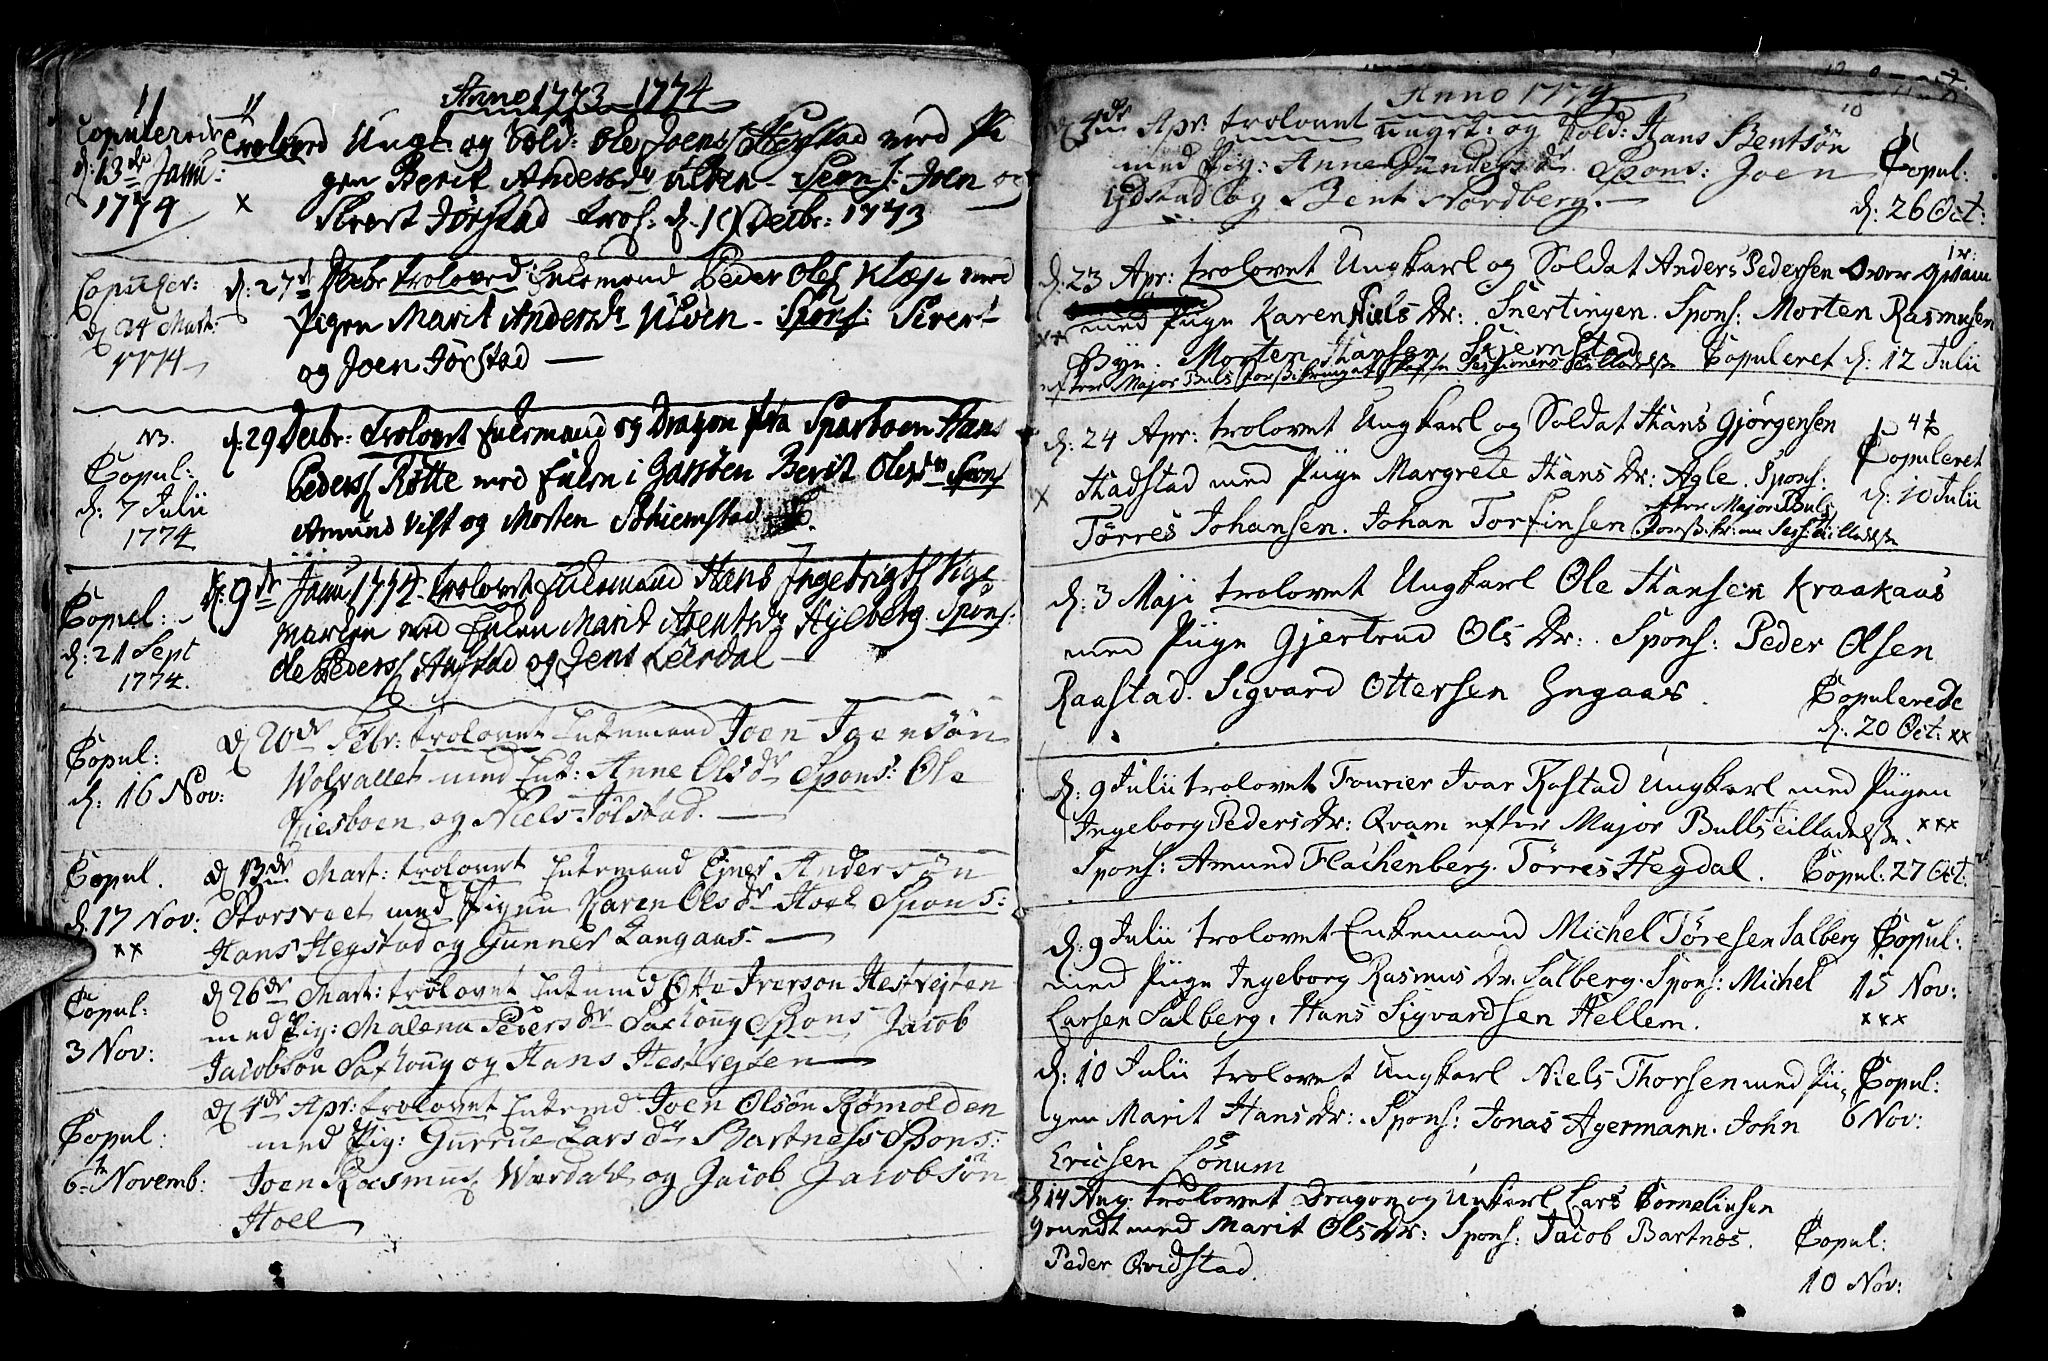 Anno 1773 1774
Copulerede
d: 13de Janu:
1774
Trolovd Ungk: og Sold: Ole Joens: Hegstad med Pi
gen Berit Andersdr Ulven - Spons: Joen og
Sivert Jørstad trol: d. Decbr: 1773
Copuler:
d 24 Mart:
1774
d: 27d Decbr troloved Enkemand Peder Oles: Klæp med
Pigen Marit Andersdr Ulven - Spons: Sivert
og Joen Jørstad
NB.
Copul:
d: 7 Julii
1774
d. 29 Decbr: trolovet Enkemand og Dragon fra Sparboen Hans
Peders: Røtte med Enken i Berit Olsdr Spons
Amund Vist og Morten Schiemstad
Copul:
d: 21 Sept
1774.
d: 9de Janu 1774 trolovet Enkemand Hans Ingebrigts:
med Enken Marit Arentsdr Hylberg. Spons:
Ole Peders: Austad og Jens Leirdal
Copul:
d: 16 Nov:
d 20de Febr: trolovet Enkemand Joen Igensøn
Wolvallet med Enk: Anne Olsdr Spons: Ole
og Niels Tølstad.
Copul.
d. 17 Nov:
xx
d 13de Mart: trolovet Enkemand Ejner Andersøn
Storsveet med Pigen Karen Olsdr Hoel Spons:
Hans Hegstad og Gunner Langaas.
Copul:
3 Nov:
d 26de Mart: trolovet Enkemd Otte Iverson Hestvejten
med Pig: Malena Pedersdr Saxhoug Spons Jacob
Jacobsøn Saxhoug og Hans Hestvejten
Copul:
6te Novemb:
d 4de Apr: trolovet Enkemd Joen Olsøn Rømolden
med Pig: Gurrue Larsdr Bartness Spons:
Joen Rasmus: Wærdahl og Jacob Jacobsøn
Hoel
Anno 1774
d 4de Apr: trolovet Ungk: og Sold: Hans Bentsøn
med Pig: Anne Gundersdr. Spons: Joen
Ydstad og Bent Nordberg.
Copul:
d: 26 Oct:
d: 23 Apr: trolovet Ungkarl og Soldat Anders Pedersen Over Qvam
med Piige Karen Niels Dr: Snertingen. Spons: Morten Rasmusen
Byn. Morten Hansen Skjerstad Copuleret d: 12 Julii
efter Major Buls
d: 24 Apr: trolovet Ungkarl og Soldat Hans Gjørgensen
Hadstad med Piige Margrete Hans Dr: Agle. Spons:
Tørres Johansen. Johan Torfinsen efter Major Buls
Copuleret
d: 10 Julii
d: 3 Maji trolovet Ungkarl Ole Hansen Kraakaas
med Piige Gjertrud Ols Dr: Spons: Peder Olsen
Raastad. Sigvard Ottersen Engaas.
Copulerede
d: 20 Oct: xx
d: 9 Julii trolovet Fourier Ivar Rostad Ungkarl med Piigen
Ingeborg Peders Dr: Qvam efter Major Bulls Tilladelse. xxx
Spons: Amund Flachenberg. Tørres Hegdal. Copul: 27 Oct:
d: 9 Julii trolovet Enkemand Michel Tøresen Salberg
med Piige Ingeborg Rasmus Dr. Salberg. Spons: Michel
Larsen Salberg. Hans Sigvardsen Hellem.
Copul:
15 Nov:
xxx
d: 10 Julii trolovet Ungkarl Niels Thorsen med Pii-
gen Marit Hans Dr: Spons: Jonas Agermann. John
Ericsen Lønum
Copul:
6 Nov:
d 14 Aug: trolovet Dragon og Unkarl Lars Corneliusen
med Marit Ols Dr: Spons: Jacob Bartnæs.
Peder Qvidstad.
Copul:
10 Nov: